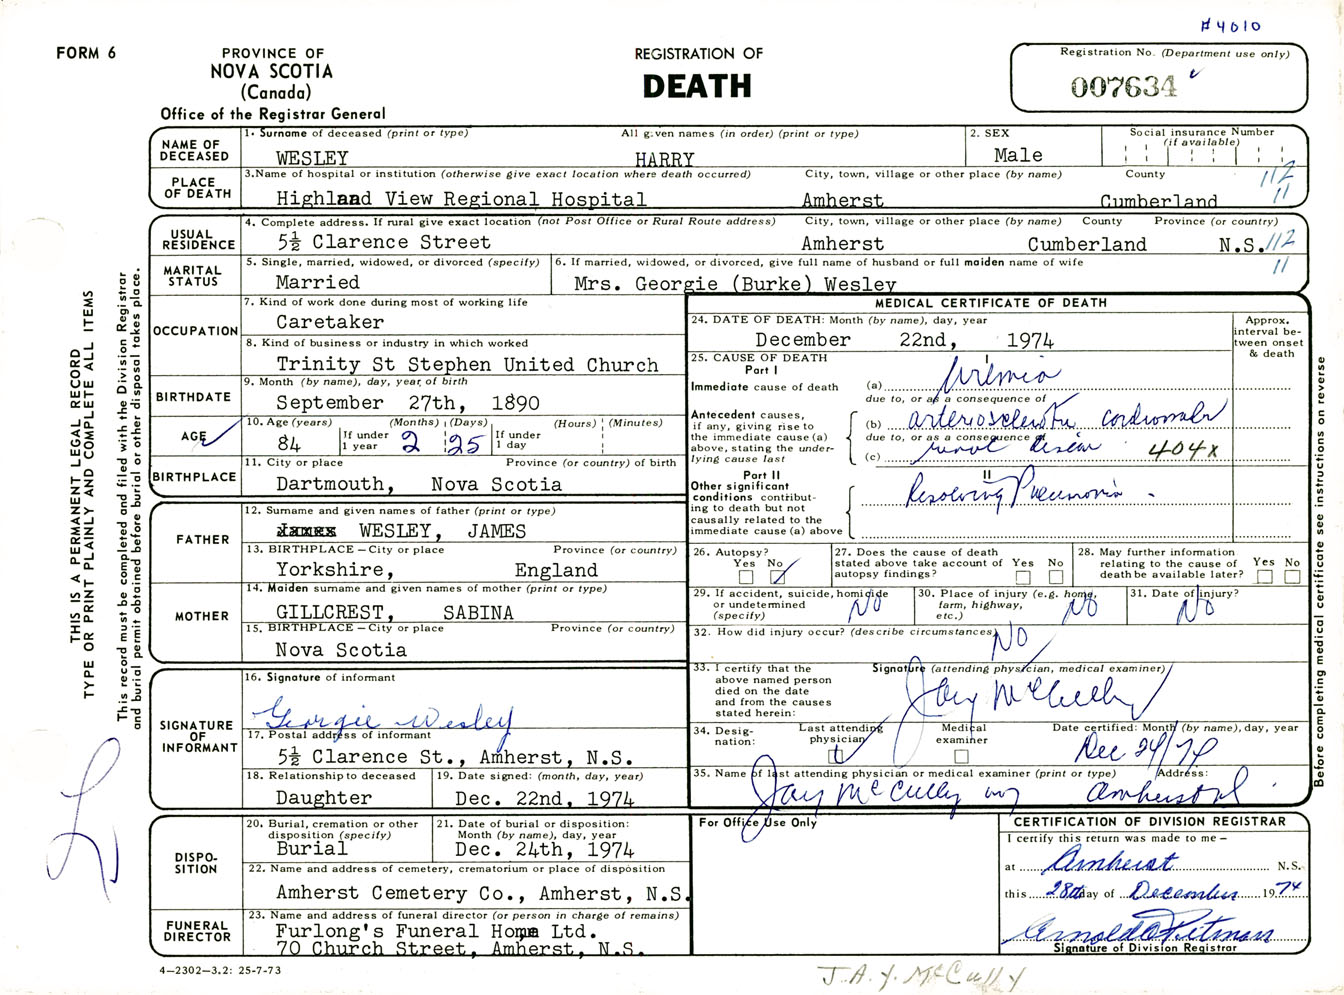 #4010
FORM 6
PROVINCE OF
NOVA SCOTIA
(Canada)
Office of the Registrar General
REGISTRATION OF
DEATH
Registration No. (Department use only)
007634
NAME OF DECEASED
1. Surname of deceased (print or type) All given names (in order) (print or type)
WESLEY HARRY
2. SEX
Male
Social insurance Number (if available)
PLACE OF DEATH
3. Name of hospital or institution (otherwise give exact location where death occurred) City, town, village or other place (by name) County
Highland View Regional Hospital Amherst Cumberland
112
11
USUAL RESIDENCE
4. Complete address. If rural give exact location (not Post Office or Rural Route address) City, town, village or other place (by name) County Province (or country)
5½ Clarence Street Amherst Cumberland N.S.
112
11
MARITAL STATUS
5. Single, married, widowed, or divorced (specify)
Married
6. If married, widowed, or divorced, give full name of husband or full maiden name of wife
Mrs. Georgie (Burke) Wesley
OCCUPATION
7. Kind of work done during most of working life
Caretaker
8. Kind of business or industry in which worked
Trinity St Stephen United Church
BIRTHDATE
9. Month (by name), day, year of birth
September 27th, 1890
AGE
10. Age (years) (Months) (Days) (Hours) (Minutes)
84 If under 1 year 2 25 If under 1 day
BIRTHPLACE
11. City or place Province (or country) of birth
Dartmouth, Nova Scotia
FATHER
12. Surname and given names of father (print or type)
James WESLEY, JAMES
13. BIRTHPLACE – City or place Province (or country)
Yorkshire, England
MOTHER
14. Maiden surname and given names of mother (print or type)
GILLCREST, SABINA
15. BIRTHPLACE – City or place Province (or country)
Nova Scotia
SIGNATURE OF INFORMANT
16. Signature of informant
Georgie Wesley
17. Postal address of informant
5½ Clarence St., Amherst, N.S.
18. Relationship to deceased
Daughter
19. Date signed: (month, day, year)
Dec. 22nd, 1974
DISPOSITION
20. Burial, cremation or other disposition (specify)
Burial
21. Date of burial or disposition: Month (by name), day, year
Dec. 24th, 1974
22. Name and address of cemetery, crematorium or place of disposition
Amherst Cemetery Co., Amherst, N.S.
FUNERAL DIRECTOR
23. Name and address of funeral director (or person in charge of remains)
Furlong's Funeral Home Ltd.
70 Church Street, Amherst, N.S.
4–2302–3.2: 25-7-73
MEDICAL CERTIFICATE OF DEATH
24. DATE OF DEATH: Month (by name), day, year
December 22nd, 1974
Approx. interval between onset & death
25. CAUSE OF DEATH
Part I
I
Immediate cause of death (a) Uremia
due to, or as a consequence of
Antecedent causes, if any, giving rise to the immediate cause (a) above, stating the underlying cause last
(b) arteriosclerotic cardiovascular
due to, or as a consequence of
(c) renal disease 404x
Part II
II
Other significant conditions contributing to death but not causally related to the immediate cause (a) above
Resolving Pneumonia
26. Autopsy?
Yes No
27. Does the cause of death stated above take account of autopsy findings?
Yes No
28. May further information relating to the cause of death be available later?
Yes No
29. If accident, suicide, homicide or undetermined (specify)
NO
30. Place of injury (e.g. home, farm, highway, etc.)
NO
31. Date of injury?
NO
32. How did injury occur? (describe circumstances)
NO
33. I certify that the above named person died on the date and from the causes stated herein:
Signature (attending physician, medical examiner)
Jay McCully
34. Designation:
Last attending physician
Medical examiner
Date certified: Month (by name), day, year
Dec 24/74
35. Name of last attending physician or medical examiner (print or type) Address:
Jay McCully Amherst
For Office Use Only
CERTIFICATION OF DIVISION REGISTRAR
I certify this return was made to me –
at Amherst N.S.
this 28th day of December 1974
Arnold Pitman
Signature of Division Registrar
J.A.Y. McCully
THIS IS A PERMANENT LEGAL RECORD
TYPE OR PRINT PLAINLY AND COMPLETE ALL ITEMS
This record must be completed and filed with the Division Registrar
and burial permit obtained before burial or other disposal takes place.
Before completing medical certificate see instructions on reverse